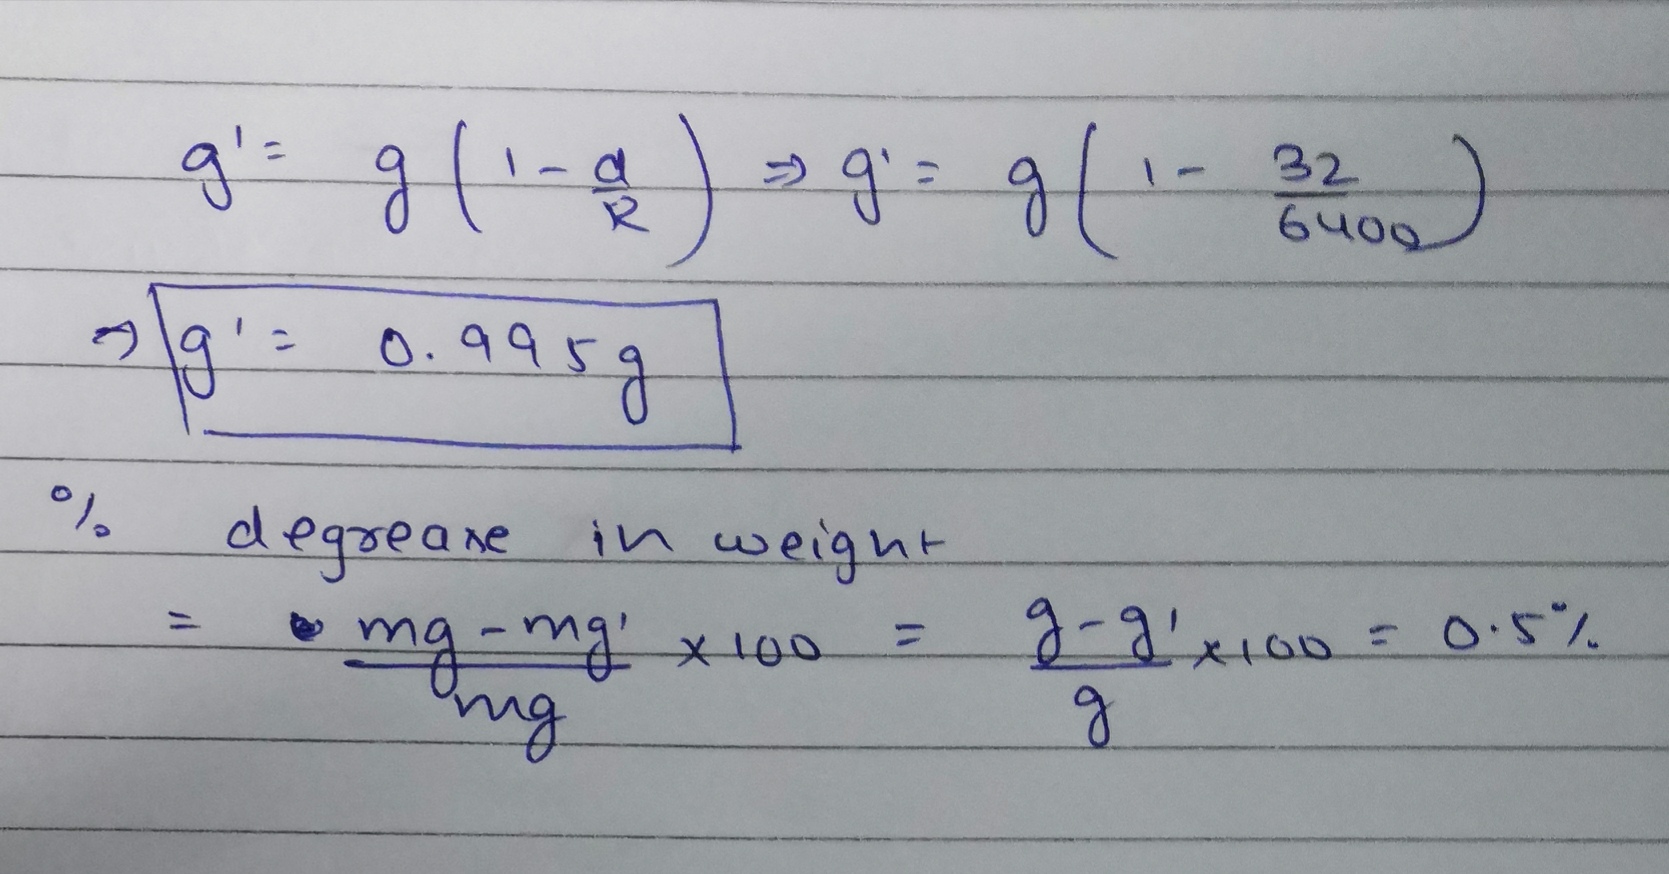 g' = g(1 - d/R) ⇒ g' = g(1 - 32/6400)
⇒ g' = 0.995g
% degrease in weight
= mg - mg'/mg × 100 = g - g'/g × 100 = 0.5%